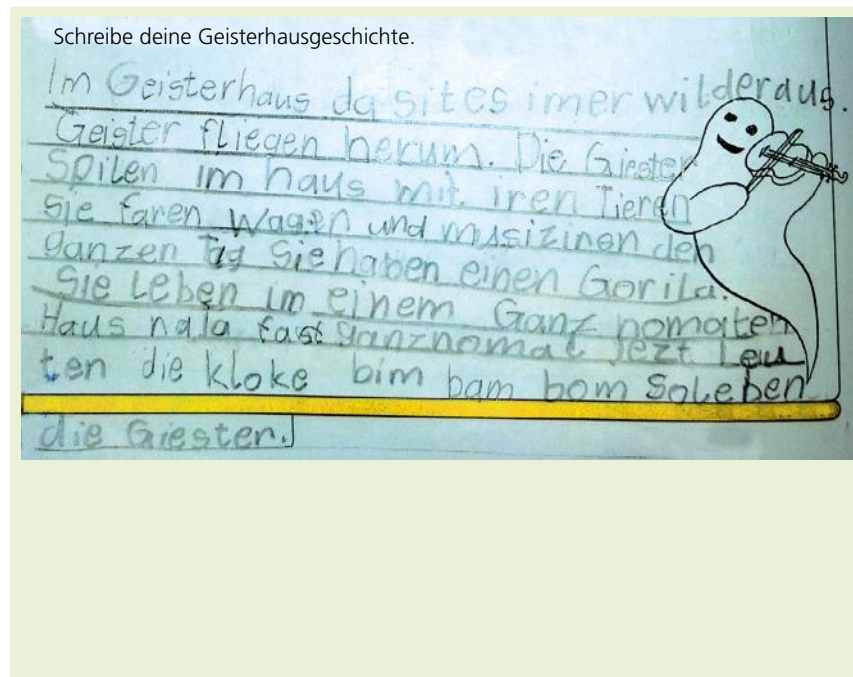 Schreibe deine Geisterhausgeschichte.
Im Geisterhaus da sites imer wilder aus.
Geister fliegen herum. Die Giester
Spilen im haus mit iren Tieren
Sie faren Wagen und musizinen den
ganzen Tag Sie haben einen Gorila.
Sie Leben im einem Ganz nomalen
Haus nala fast ganznomal jezt Leu
ten die kloke bim bam bom So leben
die Giester.